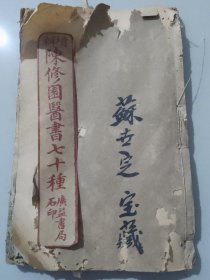 陳修園醫書七十種
廣益書局
石印
蘇世定宝藏